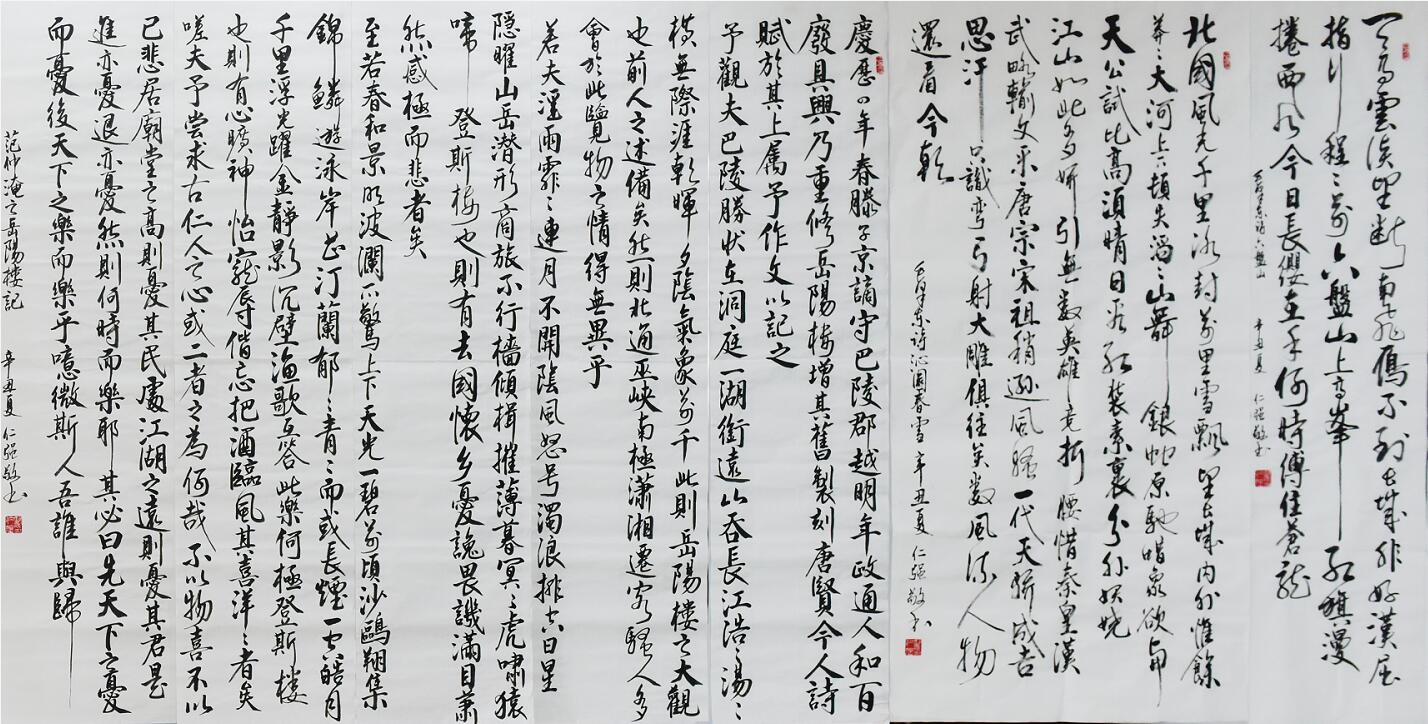 天高雲淡望断南飛鴈不到长城非好漢屈
指行程二萬六盤山上高峯红旗漫
捲西风今日長缨在手何时縛住蒼龍
毛澤東詞六盤山 辛丑夏 仁强敬书
北國風光千里冰封萬里雪飄望长城内外惟餘
莽々大河上下頓失滔々山舞銀蛇原馳蜡象欲与
天公試比高須晴日看红装素裹分外妖娆
江山如此多娇引無数英雄竞折腰惜秦皇漢
武略輸文采唐宗宋祖稍逊風骚一代天骄成吉
思汗只識弯弓射大雕俱往矣数風流人物
還看今朝
毛澤東诗沁園春雪 辛丑夏 仁强敬书
慶歷四年春滕子京謫守巴陵郡越明年政通人和百
廢具興乃重修岳陽楼增其舊製刻唐賢今人詩
賦於其上属予作文以記之
予觀夫巴陵勝状在洞庭一湖銜遠山吞長江浩々湯々
横無際涯朝暉夕陰氣象萬千此則岳陽樓之大觀
也前人之述備矣然則北通巫峡南極瀟湘遷客騷人多
會於此覽物之情得無異乎
若夫淫雨霏々連月不開陰風怒号濁浪排空日星
隐曜山岳潜形商旅不行檣傾楫摧薄暮冥々虎嘯猿
啼登斯楼也則有去國懷乡憂讒畏譏滿目蕭
然感極而悲者矣
至若春和景明波瀾不驚上下天光一碧萬頃沙鷗翔集
錦鱗遊泳岸芷汀蘭郁々青々而或長煙一空皓月
千里浮光躍金靜影沉璧渔歌互答此樂何極登斯楼
也則有心曠神怡寵辱偕忘把酒臨風其喜洋々者矣
嗟夫予嘗求古仁人之心或二者之為何哉不以物喜不以
己悲居廟堂之高則憂其民處江湖之遠則憂其君是
進亦憂退亦憂然則何時而樂耶其必曰先天下之憂
而憂後天下之樂而樂乎噫微斯人吾誰與歸
范仲淹之岳陽樓記 辛丑夏 仁强敬书